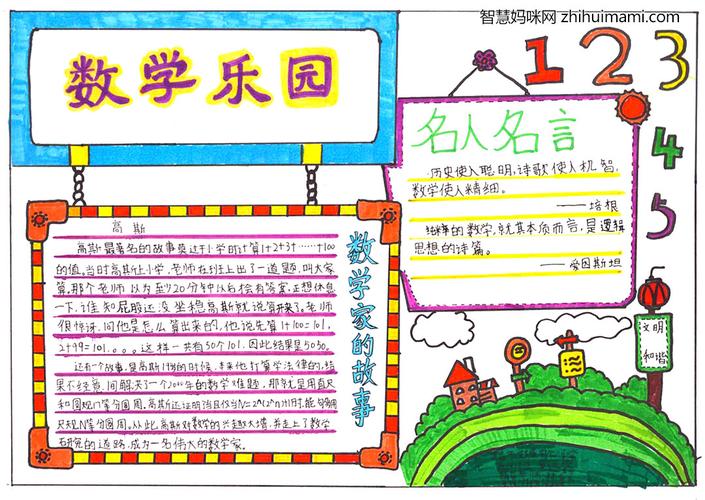 智慧妈咪网 zhihuimami.com
数学乐园
1 2 3
4
5
名人名言
历史使人聪明,诗歌使人机智,
数学使人精细。
——培根
纯粹的数学,就其本质而言,是逻辑
思想的诗篇。
——爱因斯坦
高斯
高斯最著名的故事莫过于小学时计算1+2+3+……+100
的值。当时高斯上小学,老师在班上出了一道题,叫大家
算。那个老师以为至少20分钟以后才会有答案,正想休息
一下,谁知屁股还没坐稳高斯就说算出来了。老师
很惊讶,问他是怎么算出来的,他说先算1+100=101,
2+99=101。。。这样一共有50个101,因此结果是5050。
还有个故事,是高斯19岁的时候,本来他打算学法律的,结
果不经意间解决了一个2000年的数学难题,那就是用直尺
和圆规17等分圆周。高斯还证明当且仅当
尺规N等分圆周。从此高斯对数学的兴趣大增,并走上了数学
研究的道路,成为一名伟大的数学家。
数学家的故事
文明
和谐